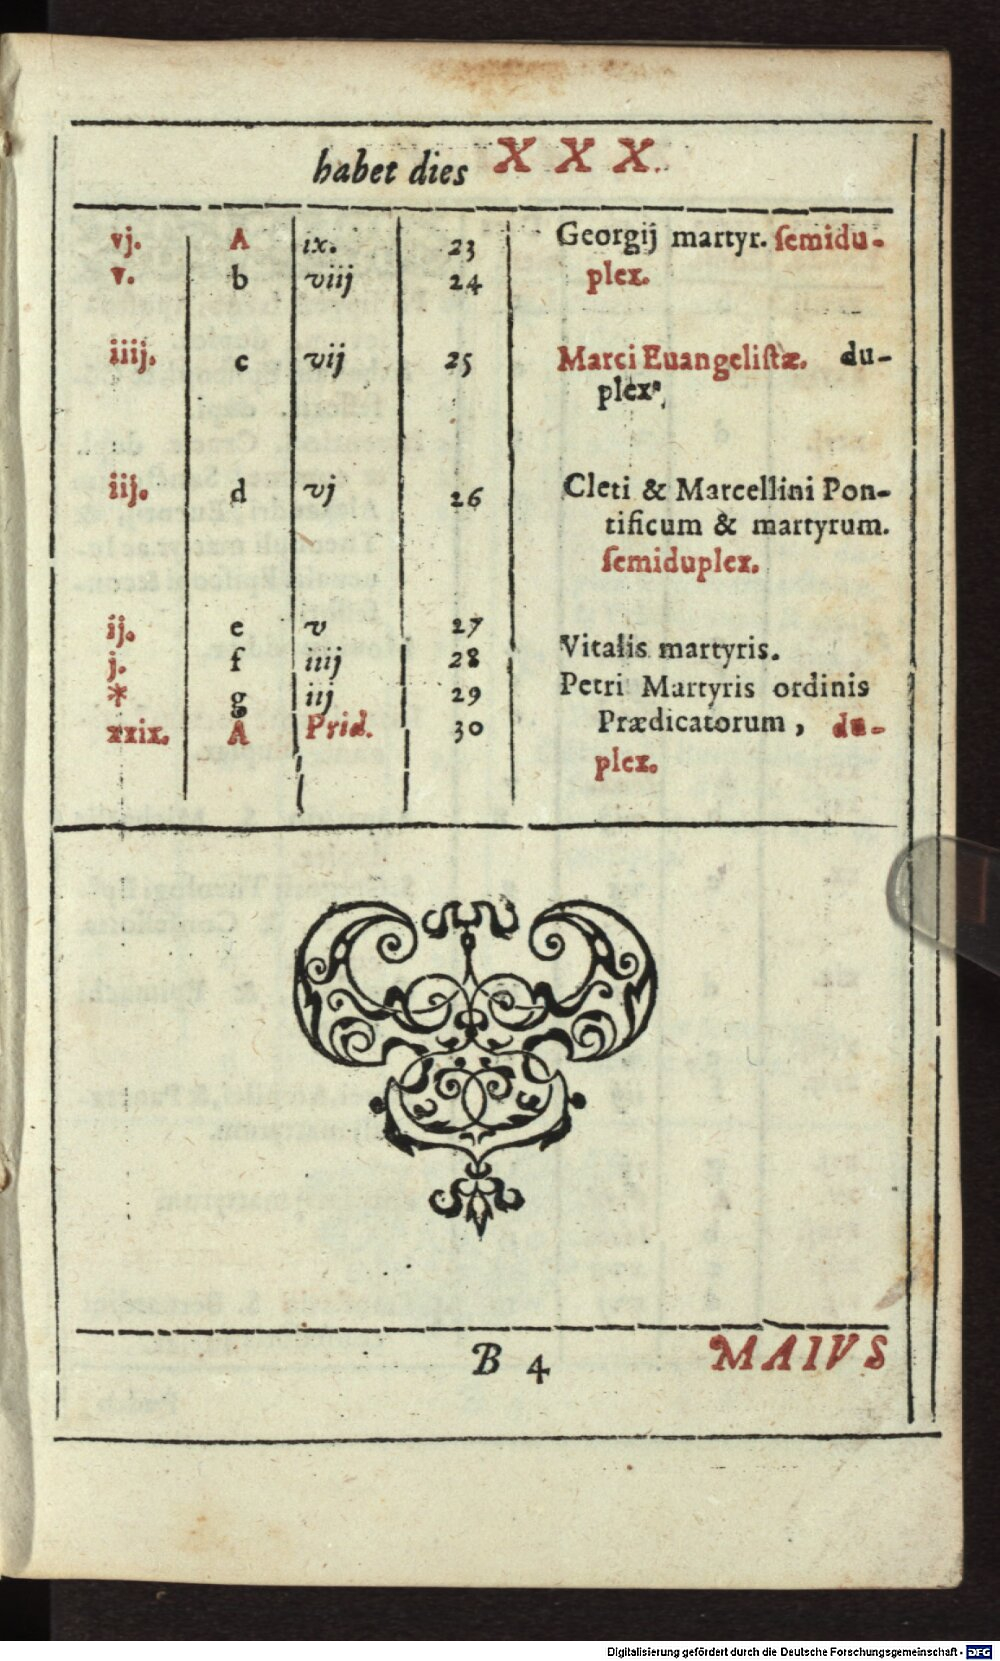 habet dies XXX.
vj. A ix. 23 Georgij martyr. ſemidu-
v. b viij 24 plex.
iiij. c vij 25 Marci Euangeliſtæ. du-
plex.
iij. d vj 26 Cleti & Marcellini Pon-
tificum & martyrum.
ſemiduplex.
ij. e v 27
j. f iiij 28 Vitalis martyris.
* g iij 29 Petri Martyris ordinis
xxix. A Prid. 30 Prædicatorum, du-
plex.
B 4 MAIVS
Digitalisierung gefördert durch die Deutsche Forschungsgemeinschaft - DFG